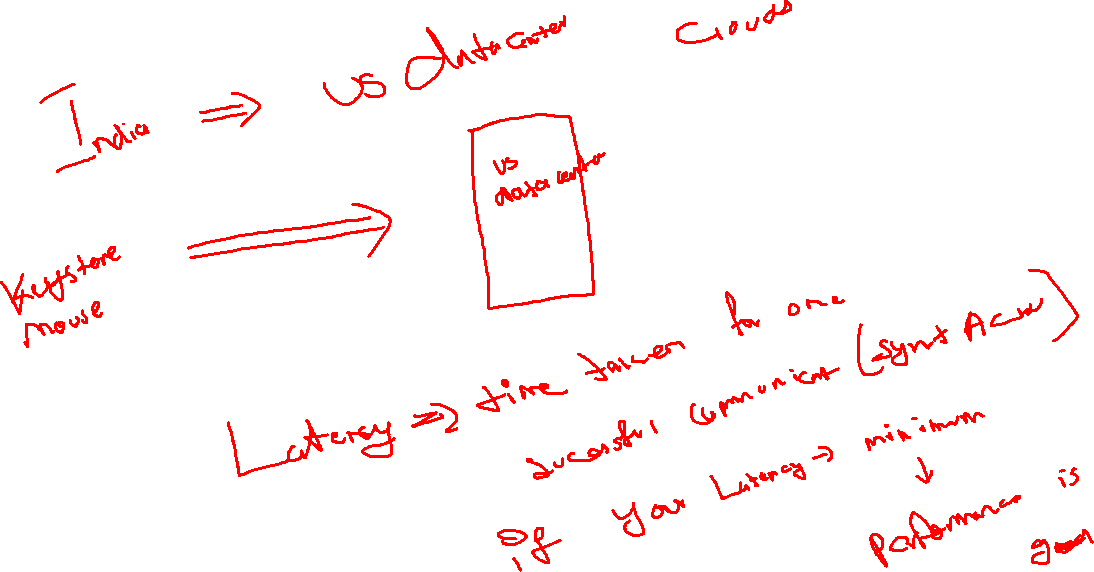 Clouds
India ⇒ US Datacenter
US
datacenter
Keystore
mouse
Latency ⇒ time taken for one
successful communicat (syn+Ack)
if your Latency → minimum
↓
Performance is
good